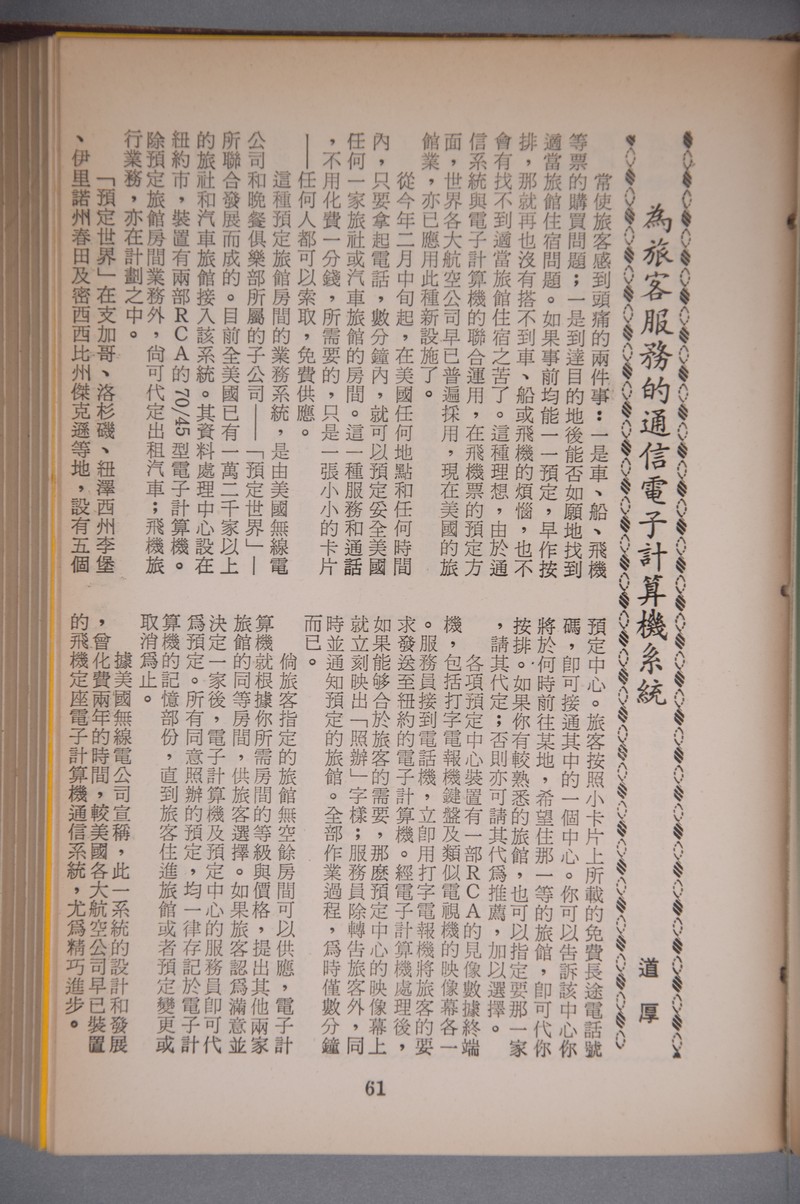 為旅客服務的通信電子計算機系統
道厚
常使旅客感到頭痛的兩件事：一是車、船、飛機
等票的購買問題；一是到達目的地後能否如願地找到
適當旅館住宿問題。如果事前均能一一預定，早作按
排，那就再也沒有搭不到車、船或飛機的煩惱，也不
會有找不到適當旅館住宿之苦了。這種理想，由於通
信系統與電子計算機的聯合運用，在飛機票的預定方
面，世界各大航空公司早已普遍採用，現在美國的旅
館業，亦已應用此種新設施了。
從今年二月中旬起，在美國任何地點和任何時間
內，只要拿起電話，數分鐘內，就可以預定妥全美國
任何一家旅社或汽車旅館的房間。這一種服務和通話
，不用化費一分錢，所需要的，只是一張小小的卡片
——任何人都可以索取，免費供應。
這種預定旅館房間的業務系統，是由美國無線電
公司和晚餐俱樂部所屬的子公司——「預定世界」—
所聯合發展而成的。目前全美國已有一萬二千家以上
的旅社和汽車旅館接入該系統。其資料處理中心設在
紐約市，裝置有兩部RCA的70/45型電子計算機。
除預定旅館房間業務外，尙可代定出租汽車；飛機旅
行業務，亦在計劃之中。
「預定世界」在支加哥、洛杉磯、紐澤西州李堡
、伊里諾州春田及密西西比州傑克遜等地，設有五個
預定中心。旅客按照小卡片上所載的免費長途電話號
碼，卽可接通其中的一個中心。你可以告訴該中心你
將於何時前往某地，希望住那一等的旅館，卽可代你
按排。如果你有較熟悉的旅館，也可以指定要那一家
，請其代定；否則亦可請其代爲推薦，加以選擇。
各項預定中心裝置有一部RCA的見像數據終端
機，包括打字電報機鍵盤及類似電視機的映像幕各一
。服務員接到電話機，立卽用打字電報機將旅客的要
求發送至紐約的電子計算機。經電子計算機處理後，
如果能够合於旅客的需要，那麽預定中心的映像幕上
就立刻映出「照辦」字樣；服務員除轉告旅客外，同
時並通知預定的旅館。全部作業過程，爲時僅數分鐘
而已。
倘旅客指定的旅館無空餘房間可以供應，電子計
算機就根據你所需房間的等級與價格，提出其他兩家
旅館的同等房間，供旅客選擇。如果旅客認爲滿意並
決定一家後，電子計算機及預定中心的服務員卽可代
爲預定。所有同意照辦的預定，均一律存記於電子計
算機的記憶部份，直到旅客住進旅館或者預定變更或
取消爲止。
據美國無線電公司宣稱，此一系統的設計和發展
，曾化費兩年的時間，較美國各大航空公司早已裝置
的飛機定座電子計算機通信系統，尤爲精巧進步。
61